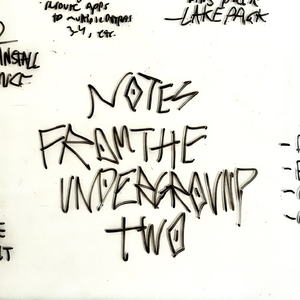 apps
to multiple outputs
3-4, etc.
LAKE PACK
INSTALL
NOTES
FROM THE
UNDERGROUND
TWO